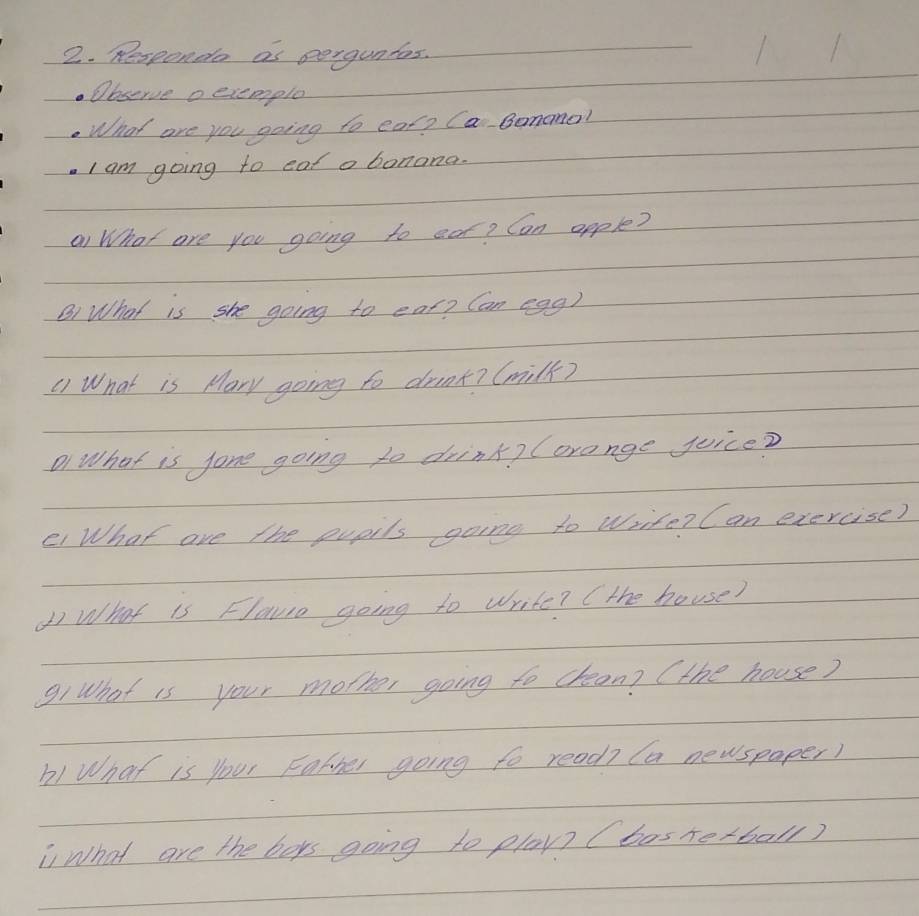 2. Responda ás perguntas.
• Observe o exemplo
• What are you going to eat? (a Banana)
• I am going to eat a banana.
a) What are you going to eat? (an apple)
B) What is she going to eat? (an egg)
c) What is Mary going to drink? (milk)
D) What is Jane going to drink? (orange juice)
e) What are the pupils going to Write? (an exercise)
f) What is Flavio going to Write? (the house)
g) What is your mother going to clean? (the house)
h) What is your Father going to read? (a newspaper)
i) What are the boys going to play? (basketball)